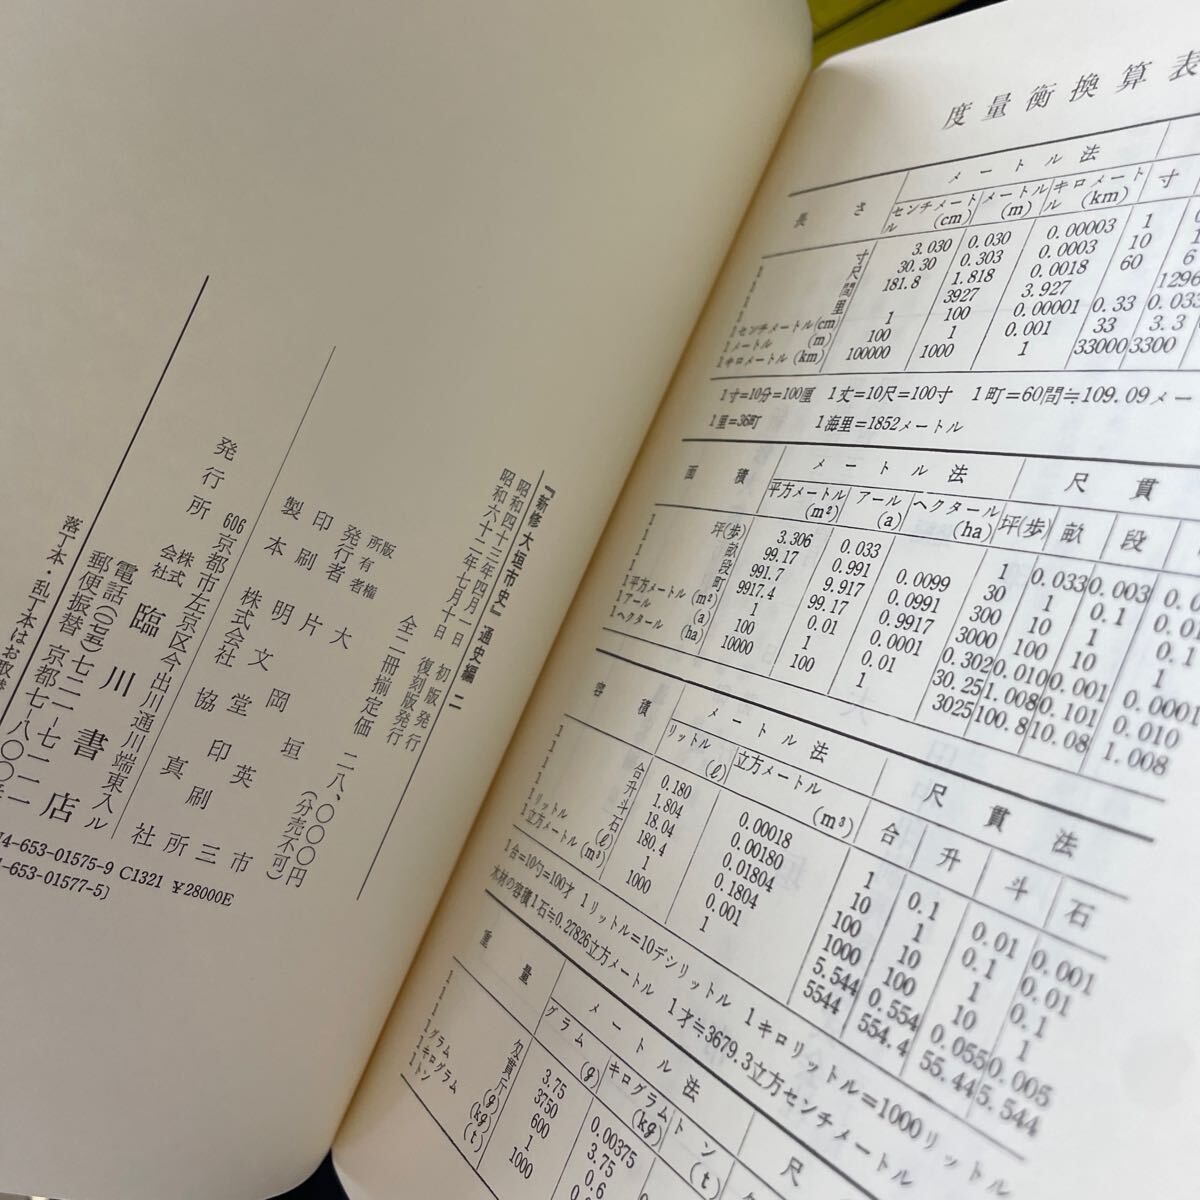 『新修大垣市史』通史編 二
昭和四十三年四月一日 初版発行
昭和六十二年七月十日 復刻版発行
全二冊揃定価 二八、〇〇〇円
(分売不可)
版権所有
発行者 大垣市
印刷 片岡英三
製本 明文堂印刷所
株式会社 協真社
発行所 株式会社 臨川書店
606 京都市左京区今出川通川端東入ル
電話(〇七五)七二一-七
郵便振替 京都七-八〇〇
落丁本・乱丁本はお取替
4-653-01575-9 C1321 ¥28000E
-653-01577-5]
度量衡換算表
長さ メートル法
センチメートル(cm) メートル(m) キロメートル(km) 寸
1寸 3.030 0.030 0.00003 1
1尺 30.30 0.303 0.0003 10
1間 181.8 1.818 0.0018 60
1里 3927 3.927 1296
1センチメートル(cm) 1 100 0.00001 0.33 0.033
1メートル(m) 100 1 0.001 33 3.3
1キロメートル(km) 100000 1000 1 33000 3300
1寸=10分=100厘 1丈=10尺=100寸 1町=60間≒109.09メー
1里=36町 1海里=1852メートル
面積 メートル法 尺貫
平方メートル(m²) アール(a) ヘクタール(ha) 坪(歩) 畝 段
1坪(歩) 3.306 0.033 1 0.033 0.003
1畝 99.17 0.991 0.0099 30 1 0.1
1段 991.7 9.917 0.0991 300 10 1
1町 9917.4 99.17 0.9917 3000 100 10
1平方メートル(m²) 1 0.01 0.0001 0.302 0.010 0.001 0.0001
1アール(a) 100 1 0.01 30.25 1.008 0.101 0.010
1ヘクタール(ha) 10000 100 1 3025 100.8 10.08 1.008
容積 メートル法 尺貫法
リットル(ℓ) 立方メートル(m³) 合 升 斗 石
1合 0.180 0.00018 1 0.1 0.01 0.001
1升 1.804 0.00180 10 1 0.1 0.01
1斗 18.04 0.01804 100 10 1 0.1
1石 180.4 0.1804 1000 100 10 1
1リットル(ℓ) 1 0.001 5.544 0.554 0.055 0.005
1立方メートル(m³) 1000 1 5544 554.4 55.44 5.544
1合=10勺=100才 1リットル=10デシリットル 1キロリットル=1000リットル
木材の容積1石≒0.27826立方メートル 1才≒3679.3立方センチメートル
重量 メートル法 尺
グラム(g) キログラム(kg) トン(t)
1匁 3.75 0.00375
1貫 3750 3.75
1斤 600 0.6
1グラム(g) 1
1キログラム(kg) 1000
1トン(t)